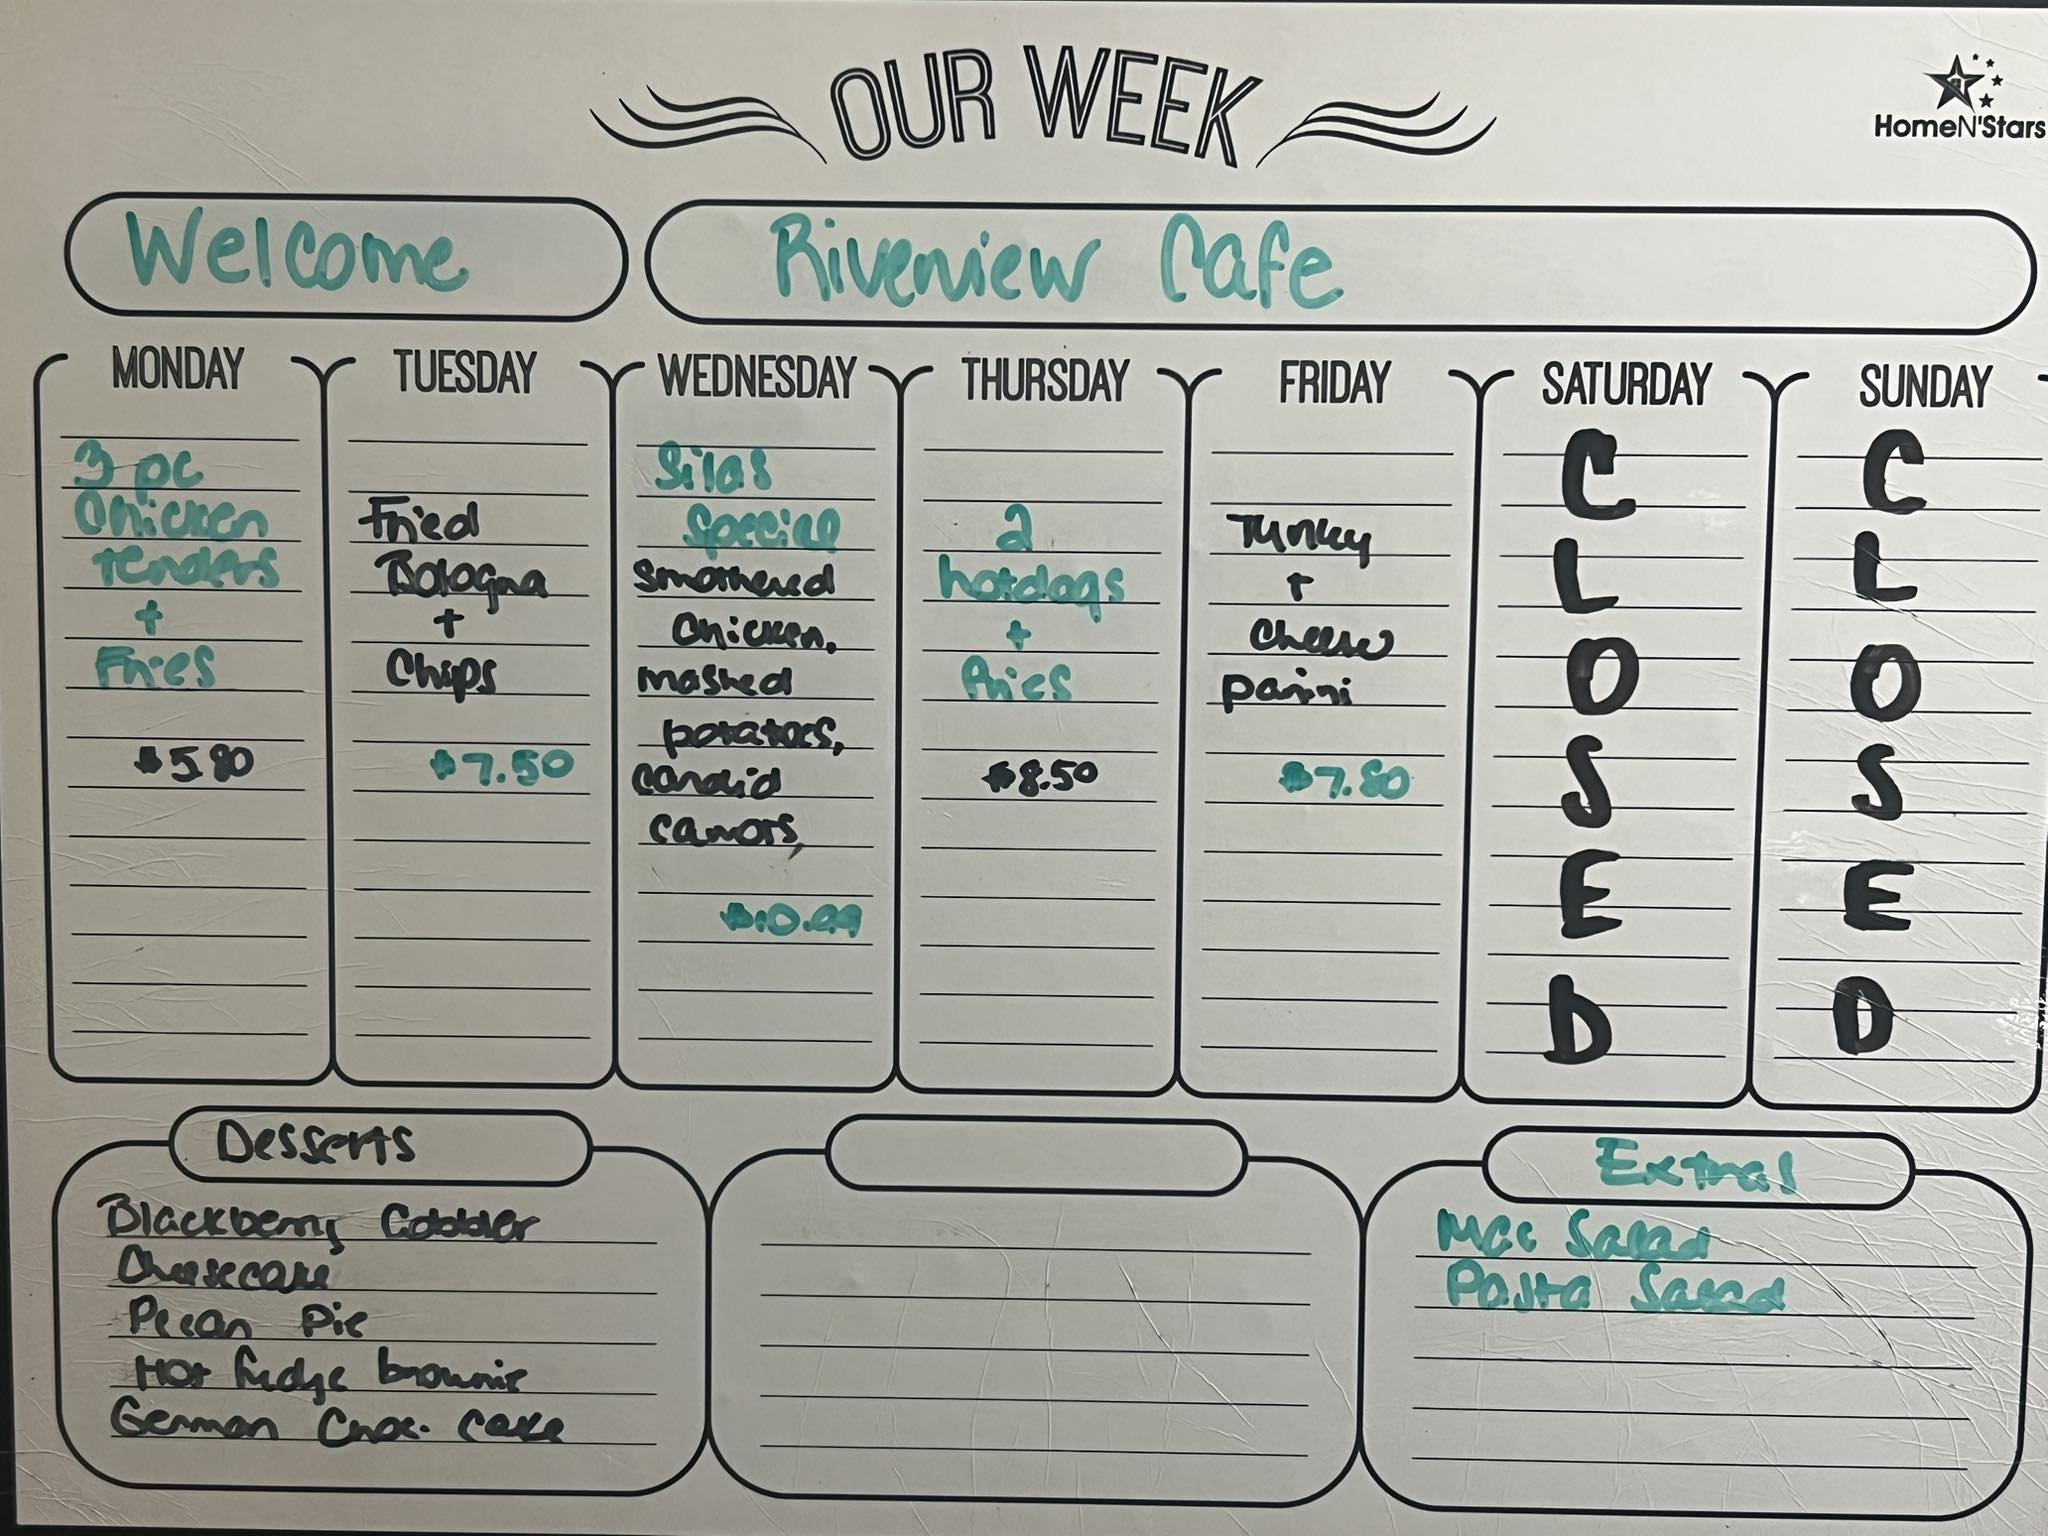 OUR WEEK
HomeN'Stars
Welcome
Riverview Cafe
MONDAY
3 pc
Chicken
tenders
+
Fries
$5.80
TUESDAY
Fried
Bologna
+
Chips
$7.50
WEDNESDAY
Silas
Special
Smothered
Chicken,
mashed
potatoes,
candid
carrots,
$10.99
THURSDAY
2
hotdogs
+
fries
$8.50
FRIDAY
Turkey
+
Cheese
panini
$7.80
SATURDAY
C
L
O
S
E
D
SUNDAY
C
L
O
S
E
D
Desserts
Blackberry Cobbler
Cheesecake
Pecan Pie
Hot fudge brownie
German Choc. Cake
Extras
Mac Salad
Pasta Salad